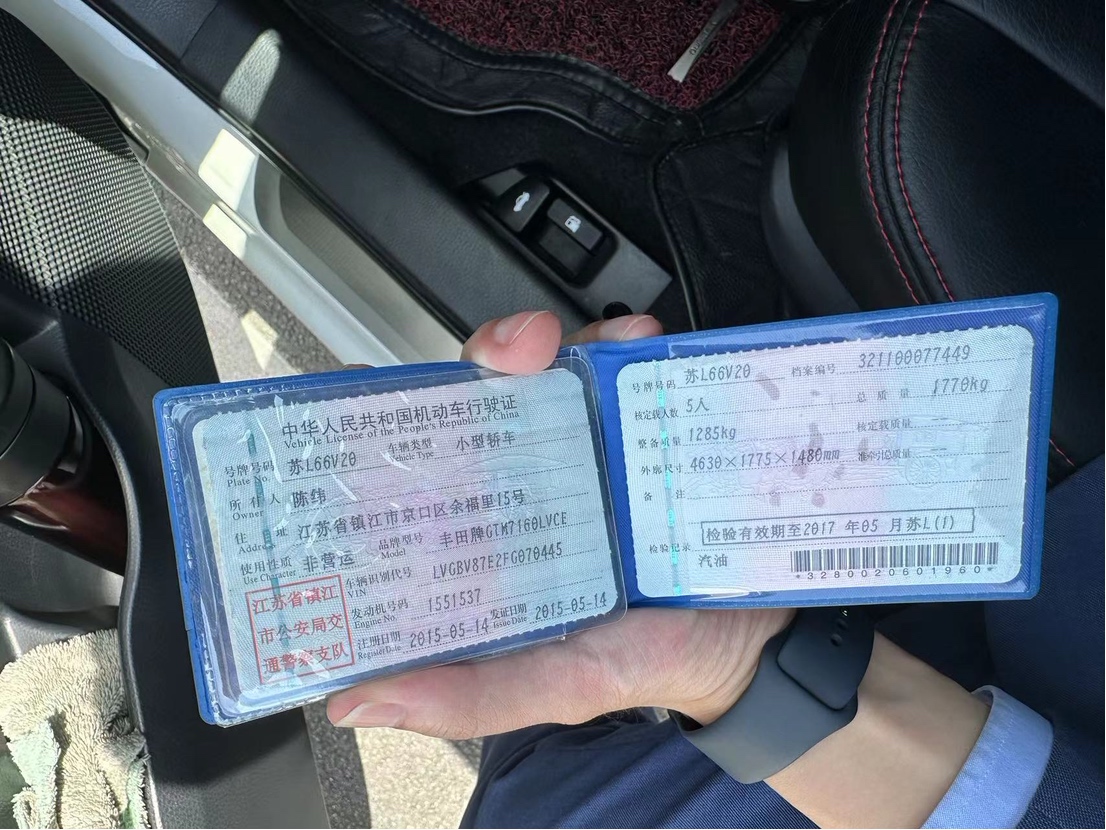 中华人民共和国机动车行驶证
Vehicle License of the People's Republic of China
号牌号码 苏L66V20 车辆类型 小型轿车
Plate No. Vehicle Type
所有人 陈纬
Owner
住址 江苏省镇江市京口区余福里15号
Address
使用性质 非营运 品牌型号 丰田牌GTM7160LVCE
Use Character Model
江苏省镇江
市公安局交
通警察支队
车辆识别代号 LVGBV87E2FG070445
VIN
发动机号码 1551537
Engine No.
注册日期 2015-05-14 发证日期 2015-05-14
Register Date Issue Date
号牌号码 苏L66V20 档案编号 321100077449
核定载人数 5人 总质量 1770kg
整备质量 1285kg 核定载质量 --
外廓尺寸 4630×1775×1480mm 准牵引总质量 --
备注
检验有效期至2017年05月苏L(1)
检验记录
汽油
*3280020601960*